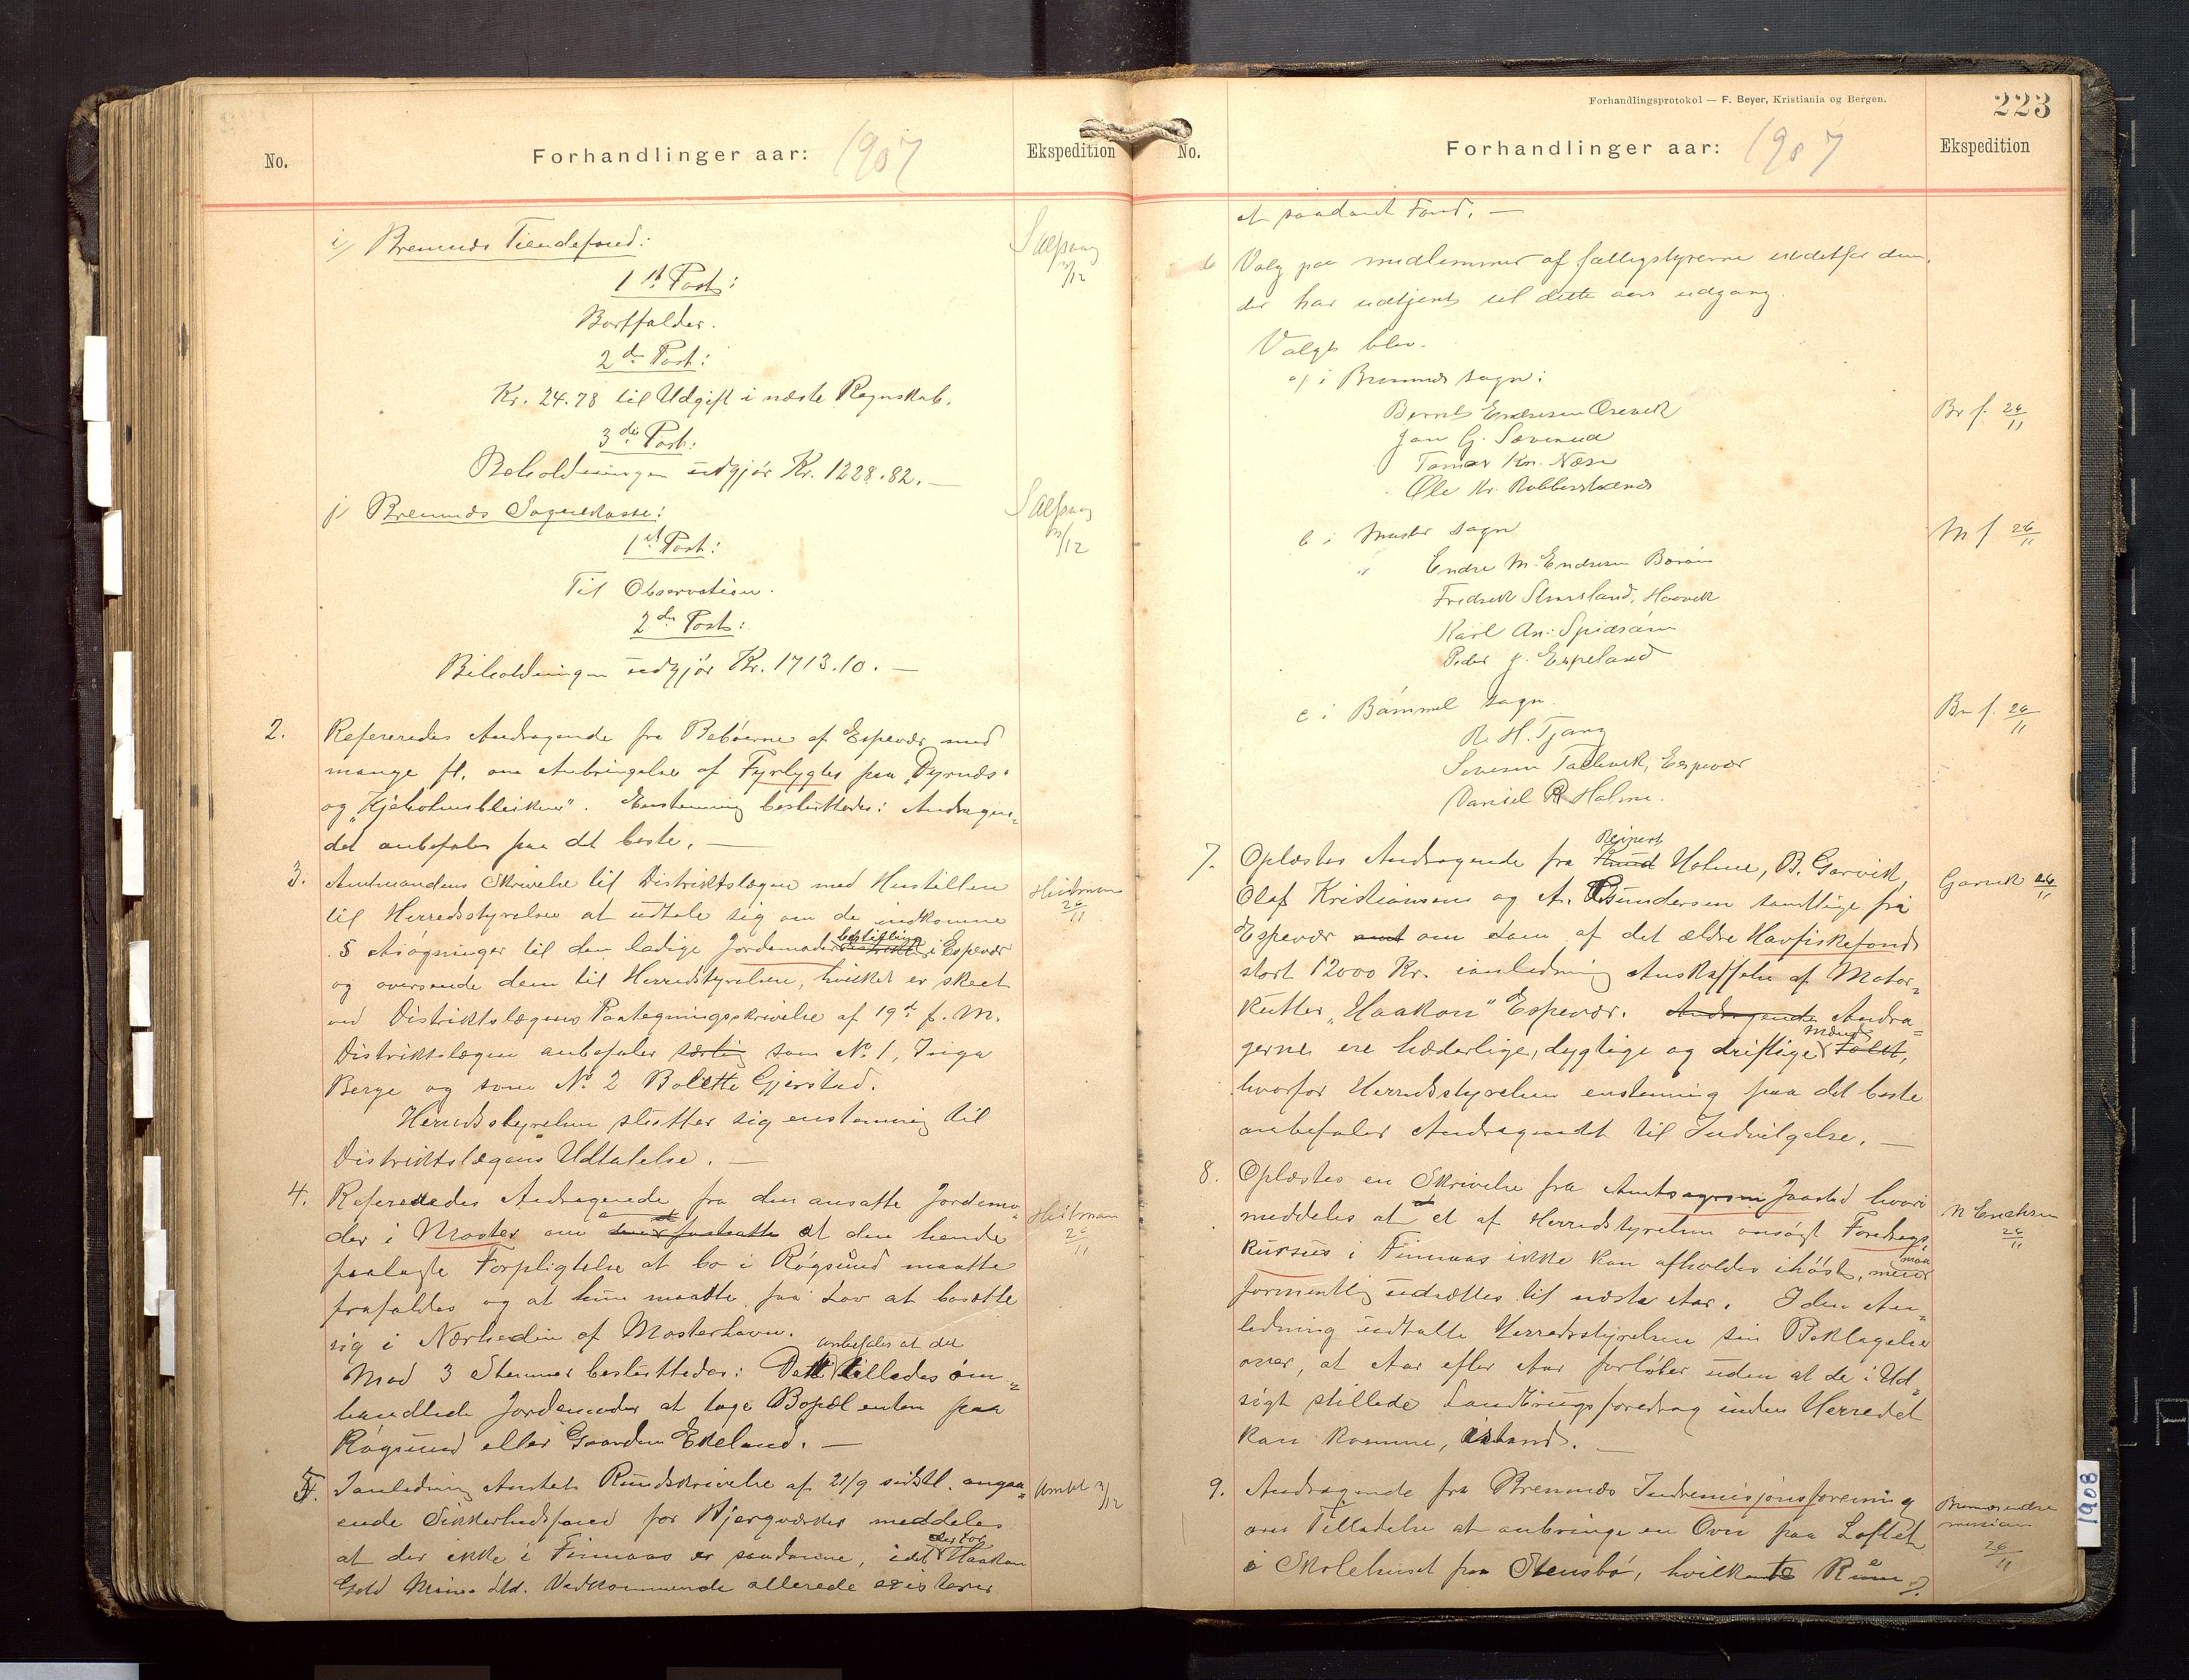 No.
Forhandlinger aar: 1907
Ekspedition
i) Bremnes Tiendefond:
1st Post:
Bortfalder.
2den Post:
Kr. 24.78 til Udgift i næste Regnskab.
3die Post:
Beholdningen udgjør Kr. 1228.82. —
3/12
j) Bremnes Sognekasse:
1st Post:
Til Observation.
2den Post:
Beholdningen udgjør Kr. 1713.10. —
3/12
2. Refereredes Andragende fra Beboerne af Espevær med
mange fl. om Anbringelse af Fyrlygter paa "Dyrnæs"
og "Kjeholmsbleiken". Enstemmig besluttedes: Andragen=
det anbefales paa det beste. —
3. Amtmandens Skrivelse til Distriktslægen med Henstillen
til Herredsstyrelsen at udtale sig om de indkomne
5 Ansøgninger til den ledige Jordemoderbestilling i Espevær
og oversende dem til Herredsstyrelsen, hvilket er skeet
ved Distriktslægens Paategningsskrivelse af 19de f. M.
Distriktslægen anbefaler særlig som No. 1, Inga
Berge og som No. 2 Bolette Gjerstad.
Herredsstyrelsen slutter sig enstemmig til
Distriktslægens Udtalelse. —
Heitman
26/11
4. Refereredes Andragende fra den ansatte Jordemo=
der i Moster om at den hende
paalagte Forpligtelse at bo i Røgsund maatte
frafaldes og at hun maatte faa Lov at bosætte
sig i Nærheden af Mosterhavn.
Med 3 Stemmer besluttedes: Det anbefales at det tillades om=
handlede Jordemoder at tage Bopæl enten paa
Røgsund eller Gaarden Ekeland. —
Heitman
26/11
5. I anledning Amtets Rundskrivelse af 21/9 sidstl. angaa=
ende Sikkerhedsfond for Bjergværker meddeles
at der ikke i Finnaas er saadanne, idet der for Haakon
Gold Mines Ltd. Vedkommende allerede existerer
Amtet 3/12
Forhandlingsprotokol — F. Beyer, Kristiania og Bergen.
223
No.
Forhandlinger aar: 1907
Ekspedition
et saadant Fond. —
6 Valg paa medlemmer af fattigstyrerne istedetfor dem,
der har udtjent til dette aars udgang.
Valgt blev.
a) i Bremnes sogn:
Bernt Endresen Økevik
Jan G. Sævereid
Tomas Kn. Næse
Ole Kr. Rubbestadnes
Br f. 26/11
b i Moster sogn
Endre M. Endresen Barane
Fredrik Stursland, Hovvik
Karl An. Spidsøen
Peder J. Espeland
M f 26/11
c i Bømmel sogn.
R. H. Tjong
Severin Taelevik, Espevær
Daniel R Holme.
Bm f. 26/11
7. Oplæstes Andragende fra Knud Reinert Holme, B. Garvik,
Olaf Kristiansens og A. Gundersen samtlige fra
Espevær amt om Laan af det ældre Havfiskefond
stort 12000 Kr. i anledning Anskaffelse af Motor=
kutter "Haakon" Espevær. Andragende Andra=
gerne ere hæderlige, dygtige og driftige Mænd Folk,
hvorfor Herredsstyrelsen enstemmig paa det beste
anbefaler Andragendet til Indvilgelse. —
Garvik 26/11
8. Oplæstes en Skrivelse fra Amtsagronom Jaastad hvori
meddeles at et af Herredsstyrelsen ansøgt Foredrags=
kursus i Finnaas ikke kan afholdes ihøst, men maa
formentlig udsættes til næste Aar. I den An=
ledning udtalte Herredsstyrelsen sin Beklagelse
over, at Aar efter Aar forløber uden at de i Ud=
sigt stillede Landbrugsforedrag inden Herredet
kan komme istand. —
N Erichsen
26/11
9. Andragende fra Bremnes Indremissionsforening
om Tilladelse at anbringe en Ovn paa Loftet
i Skolehuset paa Stensbø, hvilket Rum
Bremnes indre
mission
26/11
1908